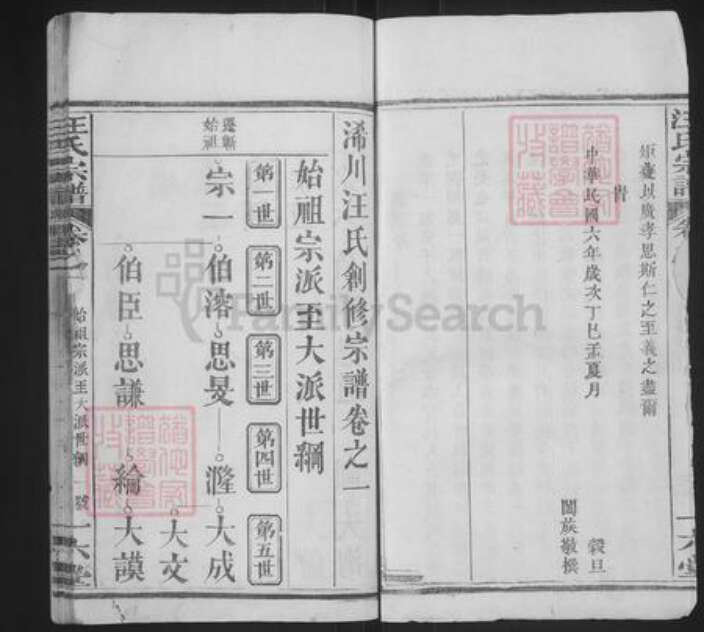 汪氏宗譜
矩虁以廣孝思斯仁之至義之盡爾
旹
中華民國六年歲次丁巳孟夏月
穀旦
闔族敬撰
六堂
浠川汪氏創修宗譜卷之一
始祖宗派至大派世綱
第一世
第二世
第三世
第四世
第五世
遷蘄
始祖
宗一
伯濬
思旻
漋
大成
大文
伯臣
思謙
綸
大謨
汪氏宗譜
卷之一
始祖宗派至大派世綱
一號
一六堂
FamilySearch